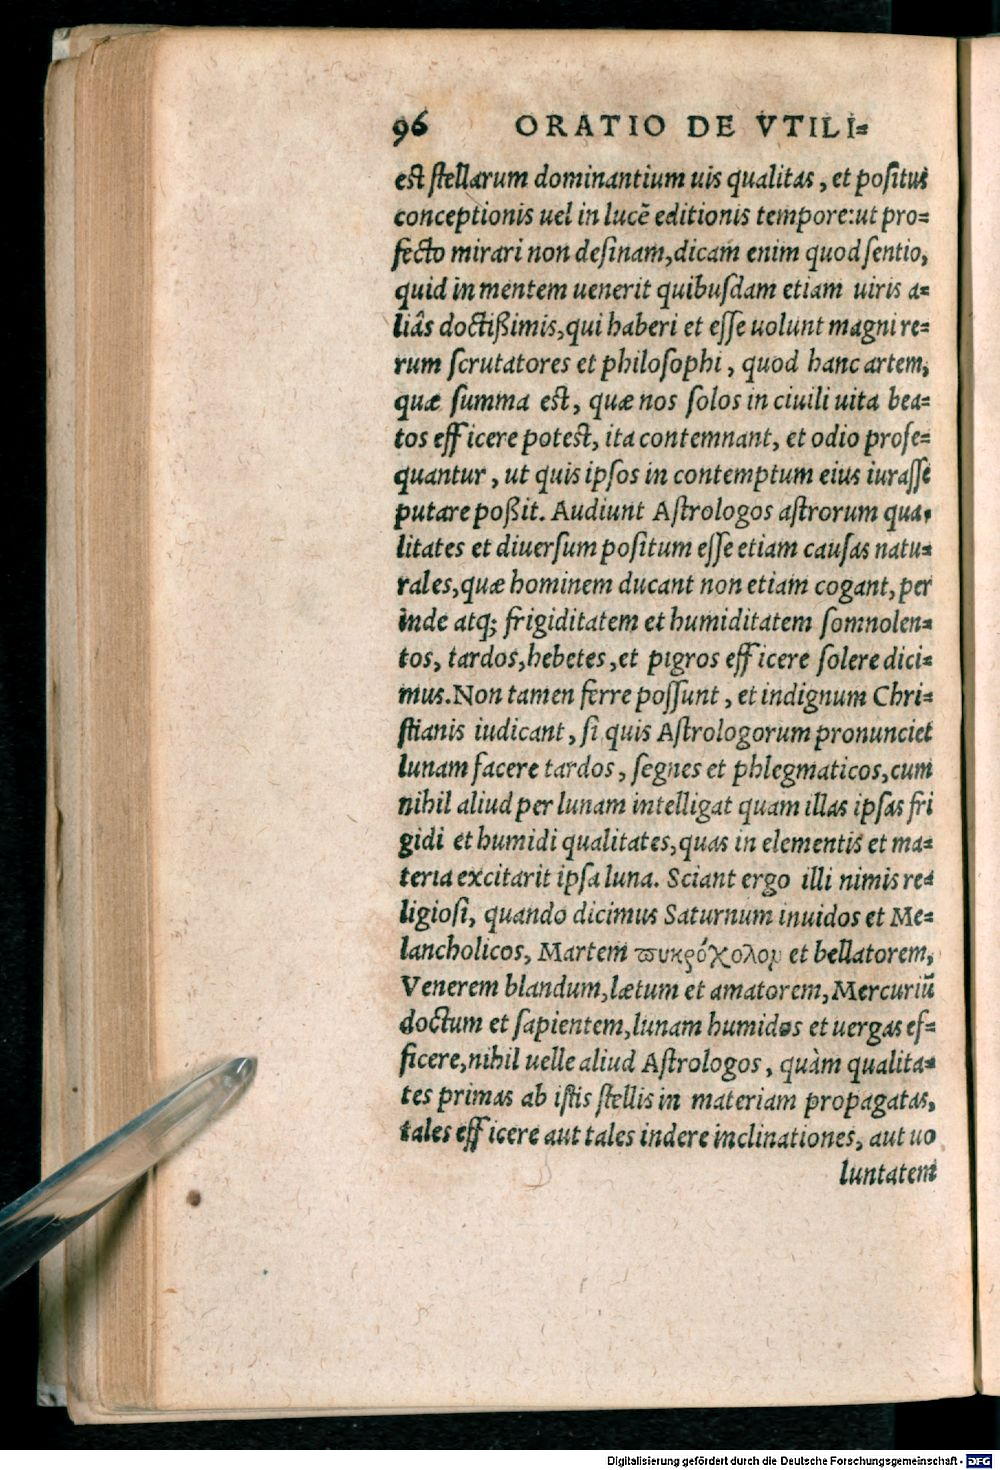 96 ORATIO DE VTILI=
est stellarum dominantium uis qualitas, et positus
conceptionis uel in lucē editionis tempore: ut pro=
fecto mirari non desinam, dicam enim quod sentio,
quid in mentem uenerit quibusdam etiam uiris a=
liâs doctißimis, qui haberi et esse uolunt magni re=
rum scrutatores et philosophi, quod hanc artem,
quæ summa est, quæ nos solos in ciuili uita bea=
tos efficere potest, ita contemnant, et odio prose=
quantur, ut quis ipsos in contemptum eius iurasse
putare poßit. Audiunt Astrologos astrorum qua=
litates et diuersum positum esse etiam causas natu=
rales, quæ hominem ducant non etiam cogant, per
inde atq; frigiditatem et humiditatem somnolen=
tos, tardos, hebetes, et pigros efficere solere dici=
mus. Non tamen ferre possunt, et indignum Chri=
stianis iudicant, si quis Astrologorum pronunciet
lunam facere tardos, segnes et phlegmaticos, cum
nihil aliud per lunam intelligat quam illas ipsas fri
gidi et humidi qualitates, quas in elementis et ma=
teria excitarit ipsa luna. Sciant ergo illi nimis re=
ligiosi, quando dicimus Saturnum inuidos et Me=
lancholicos, Martem πυκρόχολον et bellatorem,
Venerem blandum, lætum et amatorem, Mercuriū
doctum et sapientem, lunam humidos et uergas ef=
ficere, nihil uelle aliud Astrologos, quàm qualita=
tes primas ab istis stellis in materiam propagatas,
tales efficere aut tales indere inclinationes, aut uo
luntatem
Digitalisierung gefördert durch die Deutsche Forschungsgemeinschaft - DFG